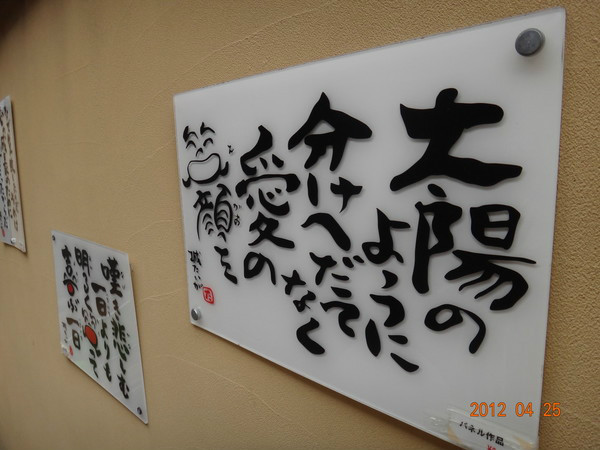 太陽の
ように
分けへだて
なく
愛の
笑顔を
えがお
嘆き悲しむ
一日よりも
明るく って
喜ぶ一日
パネル作品
2012 04 25